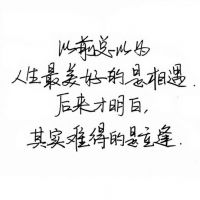 以前总以为
人生最美好的是相遇.
后来才明白,
其实难得的是重逢.